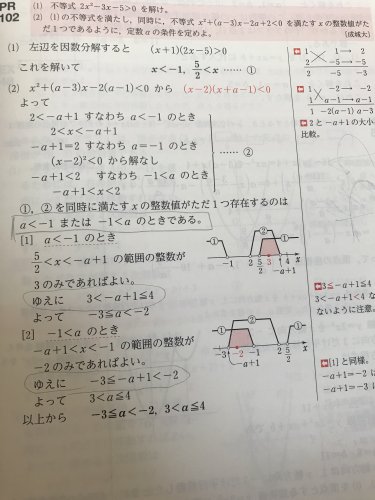 PR
102
(1) 不等式 2x²−3x−5>0 を解け。
(2) (1)の不等式を満たし，同時に，不等式 x²+(a−3)x−2a+2<0 を満たす x の整数値がただ
1つであるように，定数 a の条件を定めよ。
[成城大]
(1) 左辺を因数分解すると (x+1)(2x−5)>0
これを解いて x<−1, 5/2<x …… ①
(2) x²+(a−3)x−2(a−1)<0 から (x−2)(x+a−1)<0
よって
2<−a+1 すなわち a<−1 のとき
2<x<−a+1
−a+1=2 すなわち a=−1 のとき
(x−2)²<0 から 解なし
−a+1<2 すなわち −1<a のとき
−a+1<x<2
…… ②
①，②を同時に満たす x の整数値がただ1つ存在するのは
a<−1 または −1<a のときである。
[1] a<−1 のとき
5/2<x<−a+1 の範囲の整数が
3のみであればよい。
ゆえに 3<−a+1≦4
よって −3≦a<−2
[2] −1<a のとき
−a+1<x<−1 の範囲の整数が
−2のみであればよい。
ゆえに −3≦−a+1<−2
よって 3<a≦4
以上から −3≦a<−2, 3<a≦4
1 1 → 2
2 −5 → −5
2 −5 −3
1 −2 → −2
1 a−1 → a−1
1 −2(a−1) a−3
2と−a+1の大小
比較。
① ② ①
−1 2 5/2 3 4 x
−a+1
3≦−a+1≦4
3<−a+1<4 な
ないように注意。
① ② ①
−3 −2 −1 2 5/2 x
−a+1
[1]と同様。
−a+1=−2 は
−a+1=−3 は